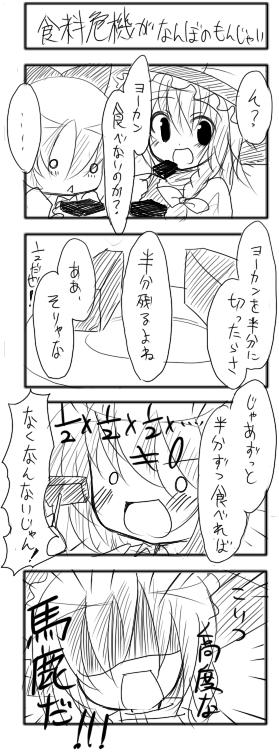 食料危機がなんぼのもんじゃい
ん？
ヨーカン
食べないのか？
・・・・
ヨーカンを半分に
切ったらさ
半分残るよね
ああ、
そりゃな
1/2だな!!
じゃあずっと
半分ずつ食べれば
1/2×1/2×1/2×・・・・
≠0
なくなんないじゃん!
こいつ
高度な
馬鹿だ!!!